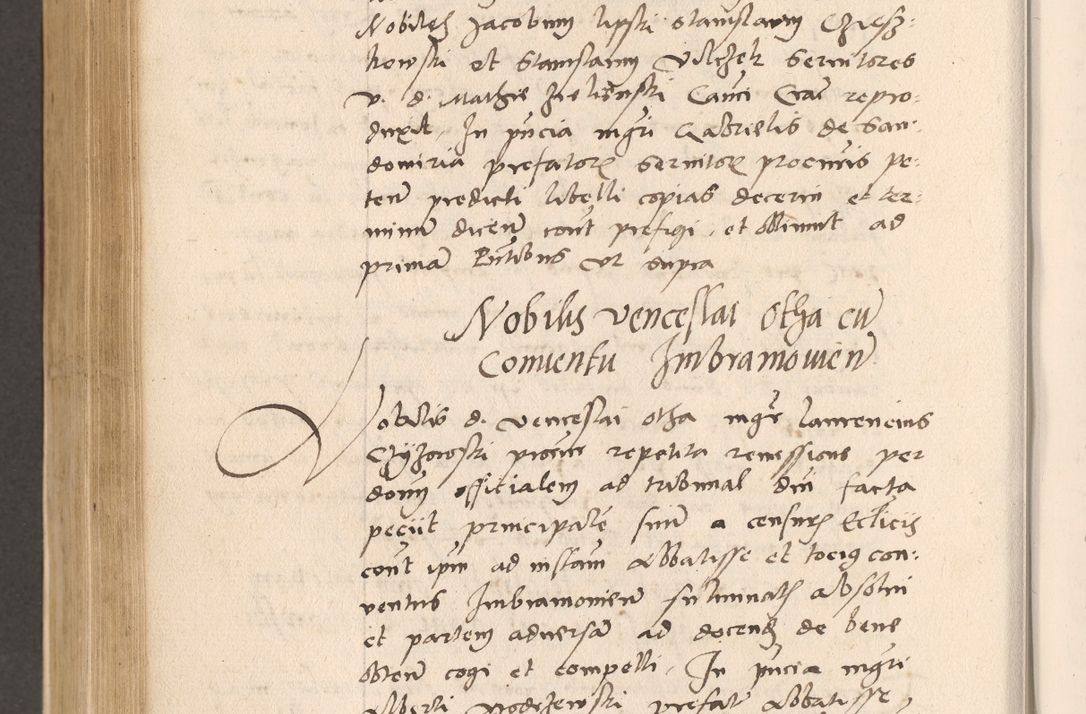 Nobiles Jacobum lipski Stanislaum Czesz-
kowski et Stanislaum Vilczek Servitores
v. d. Mathie Zielienski Canci Crac repro-
duxit, In pncia mgri Gabrielis de San-
domiria prefatorz servitorz procuris pe-
ten predicti libelli copias decerni et ter-
minum dicen cont prefigi, et obtinuit ad
primam Pntibus Vt supra
Nobilis venceslai Otha cum
Conventu Imbramovien
Nobilis d. venceslai otha mgr laurencius
Czyzowski procur repetita remissione per
dnum officialem ad tribunal dni facta
peciit principalem suum a censuris Ecclicis
cont ipm ad instam abbatisse et tocius con-
ventus Imbramovien fulminatis absolvi
et partem adversam ad docend de bene
obten cogi et compelli, In pncia mgri
Alberti Modrzewski prefate abbatisse